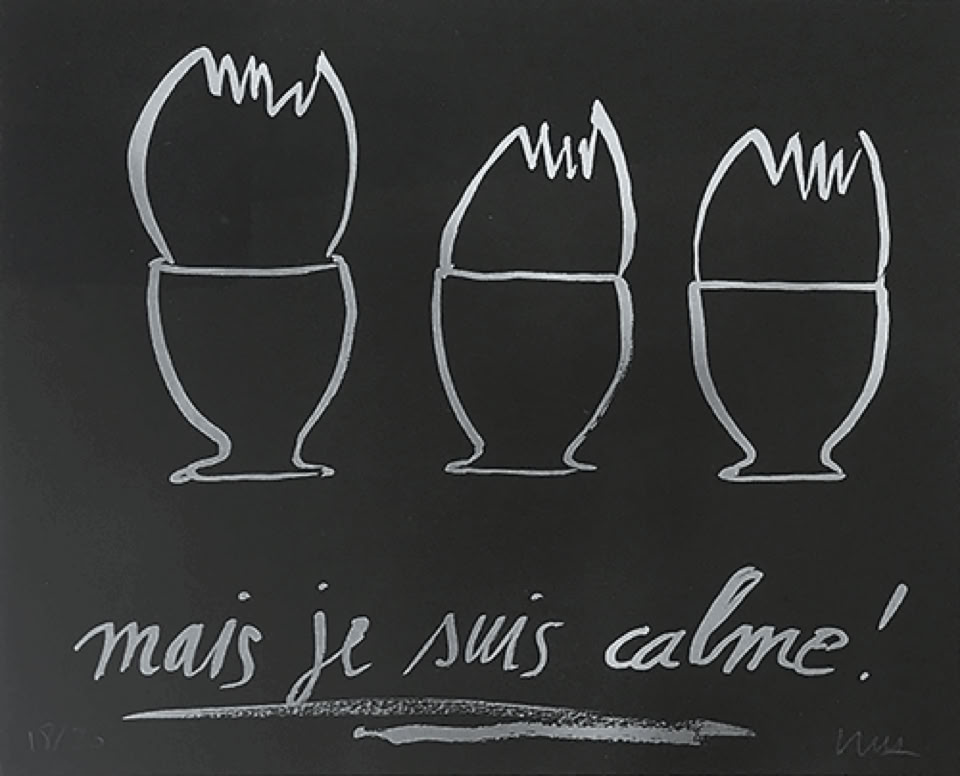 mais je suis calme!